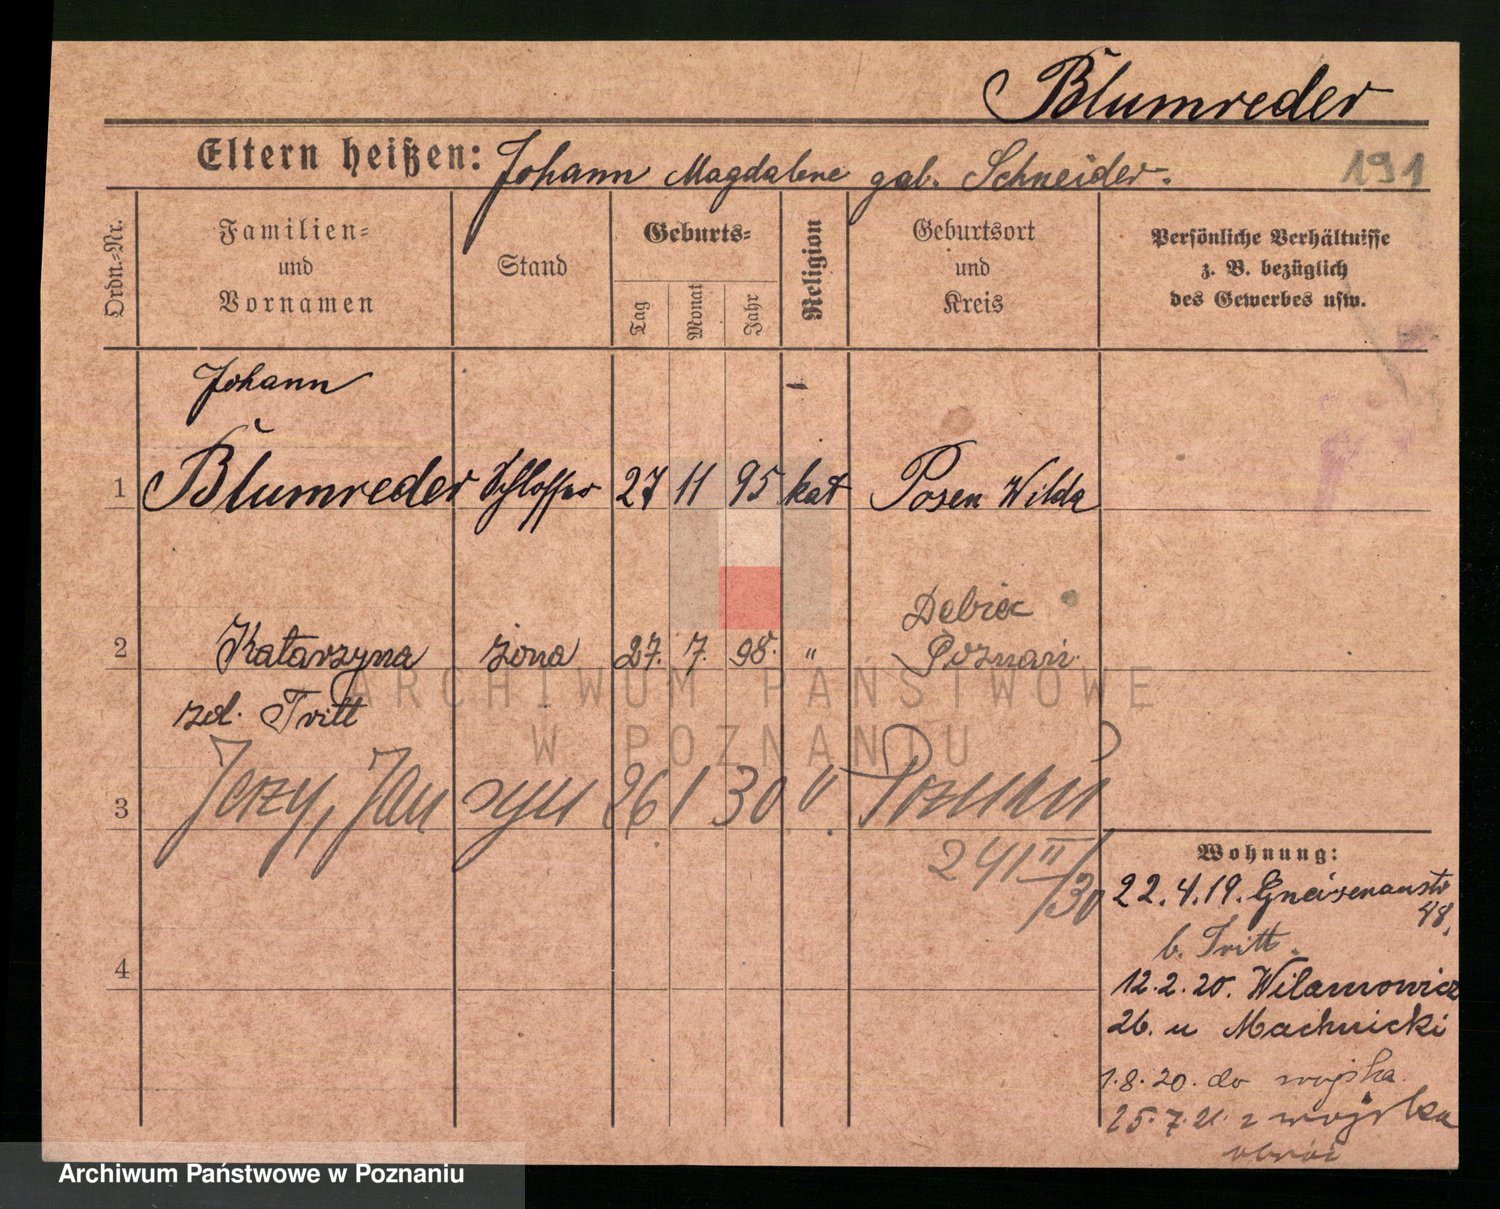 Blumreder
Eltern heißen: Johann Magdalene geb. Schneider.
191
Ordn.-Nr.
Familien- und Vornamen
Stand
Geburts-
Tag
Monat
Jahr
Religion
Geburtsort und Kreis
Persönliche Verhältnisse
z. B. bezüglich
des Gewerbes usw.
Johann
1 Blumreder Schlosser 27 11 95 kat Posen Wilda
Debiec
2 Katarzyna żona 27. 7. 98. " Poznań
zd. Tritt
3 Jerzy, Jan syn 26. 1 30 " Poznań
24/II/30
4
Wohnung:
22.4.19. Gneisenaustr
48.
b. Tritt.
12.2.20. Wilamowicz
26. u Machnicki
1.8.20. do wojska.
25.7.21. z wojska
ARCHIWUM PAŃSTWOWE
W POZNANIU
Archiwum Państwowe w Poznaniu